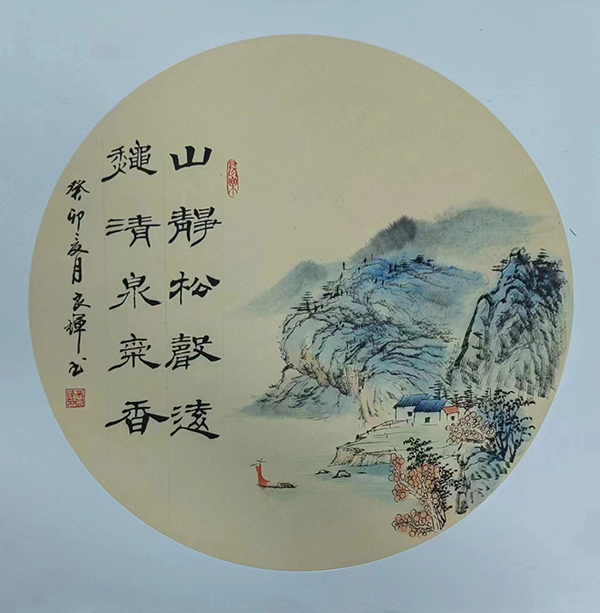 山靜松聲遠
龝清泉氣香
癸卯夏月良輝书